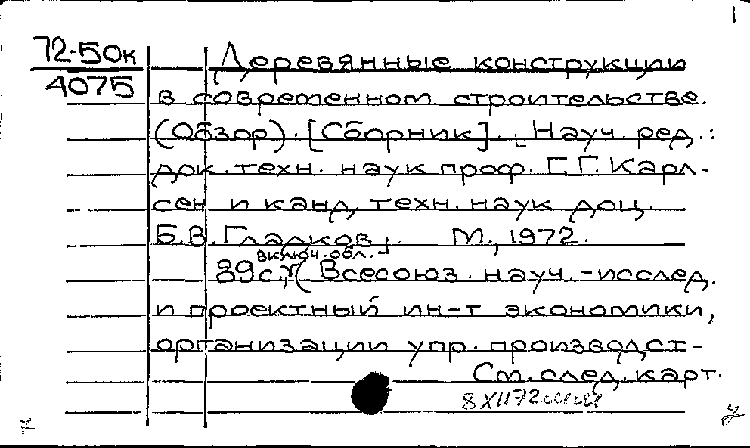 1
72-50к
4075
Деревянные конструкции
в современном строительстве.
(Обзор). [Сборник]. Науч. ред.:
док. техн. наук проф. Г.Г. Карл-
сен и канд. техн. наук доц.
Б.В. Гладков]. М., 1972.
включ. обл.
39с., (Всесоюз. науч.-исслед.
и проектный ин-т экономики,
организации упр. производст-
См. след. карт.
8 XII 72